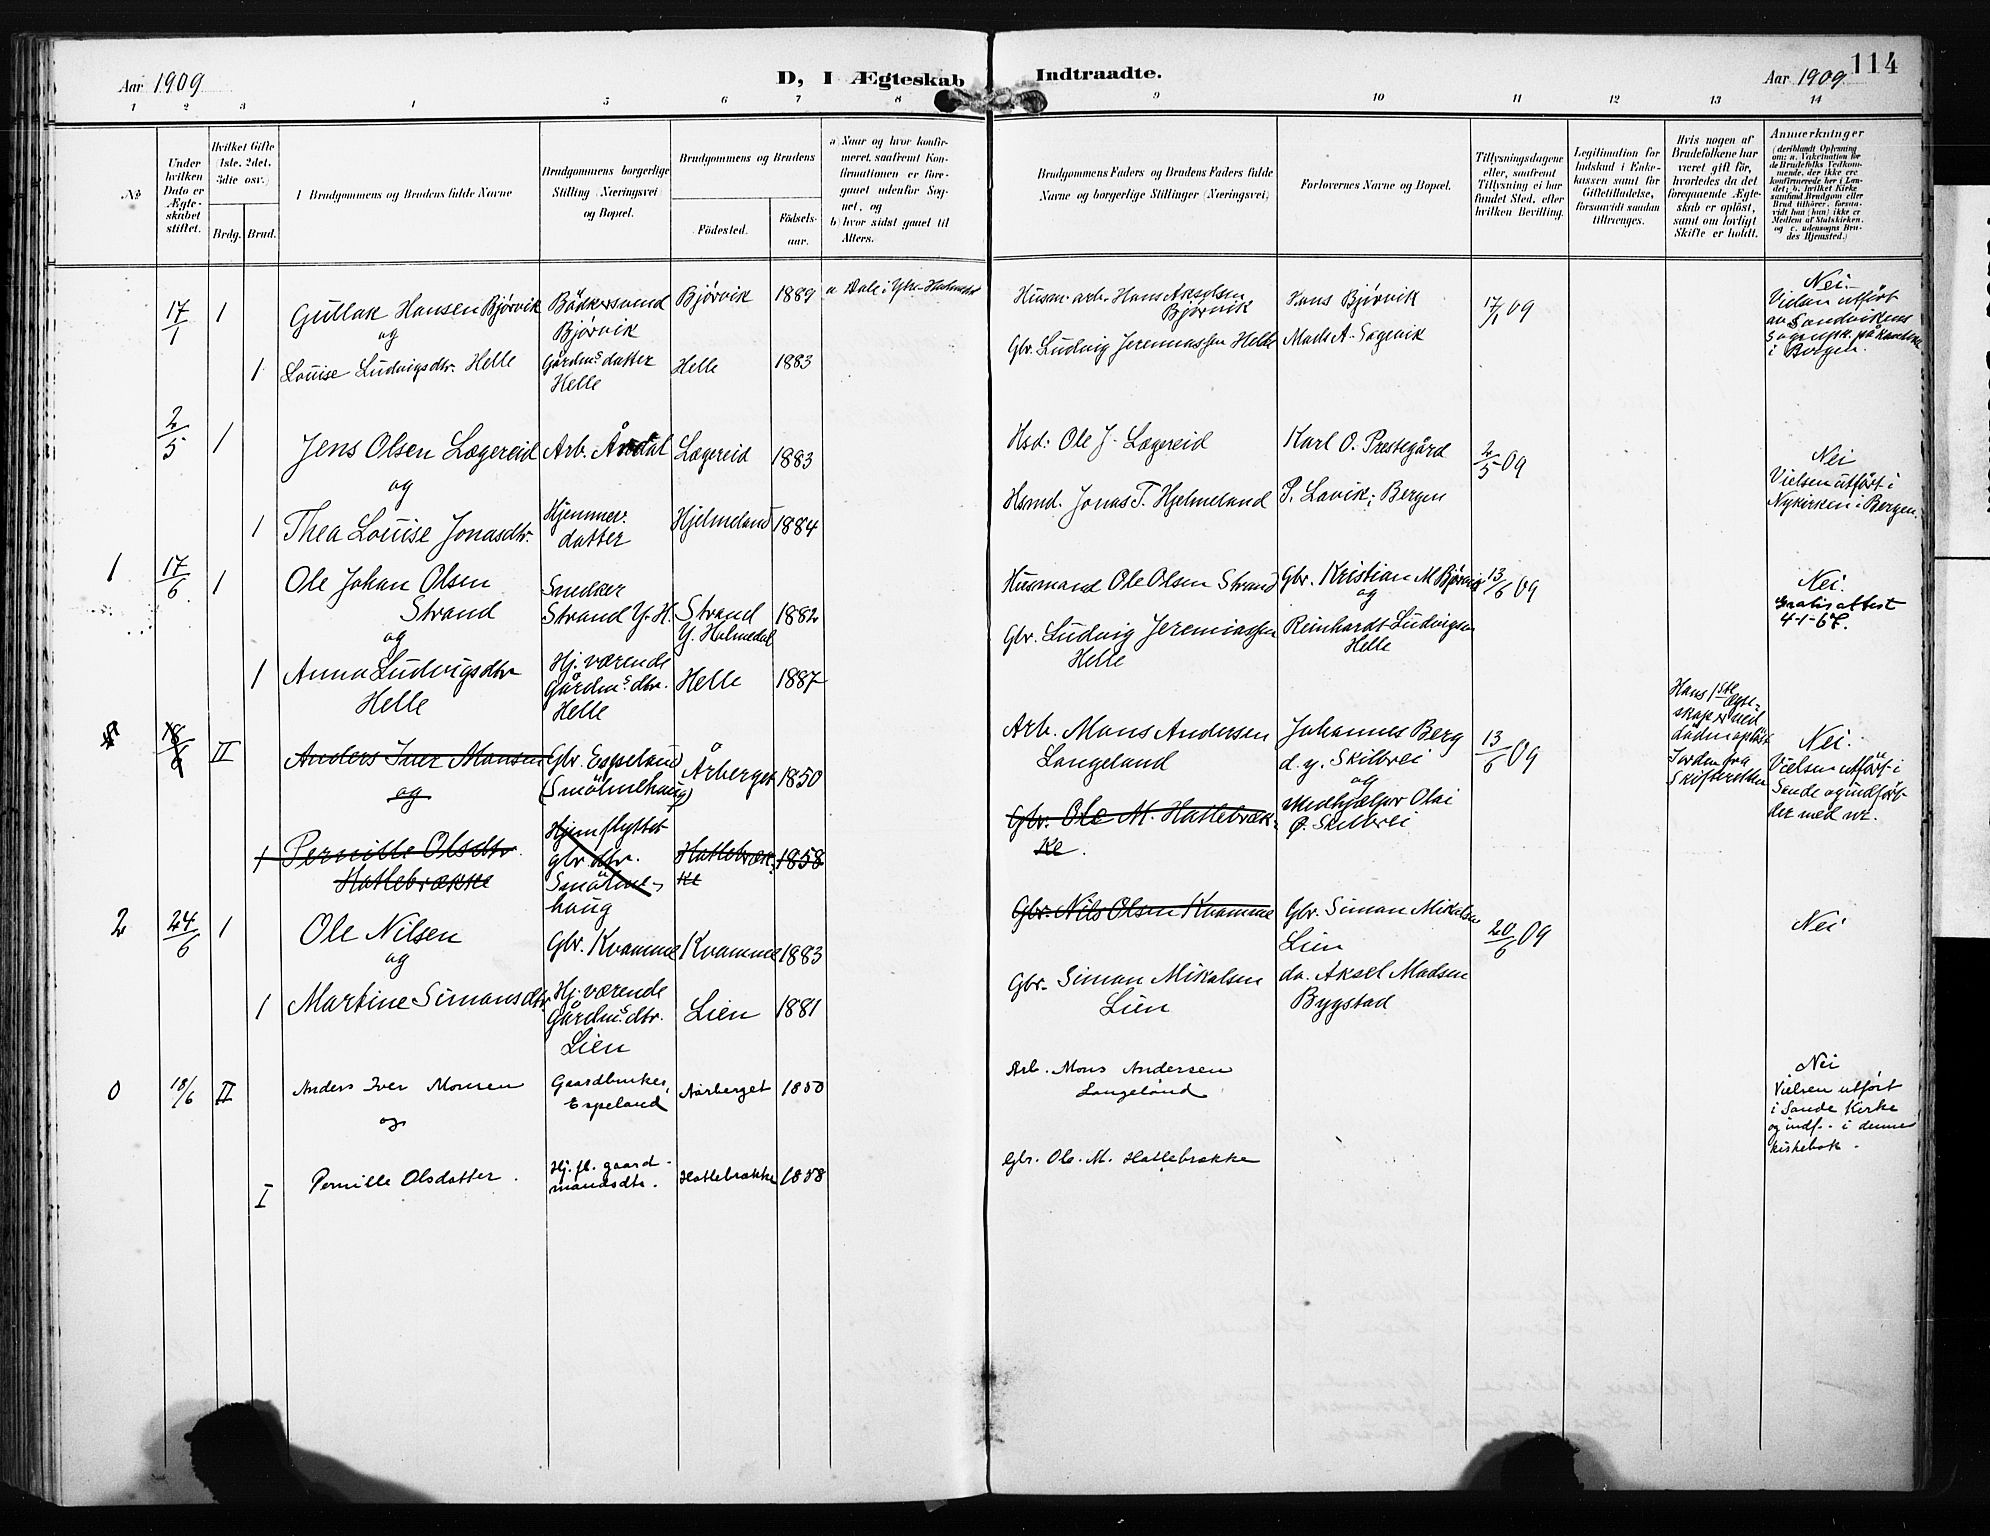 Aar 1909
D, I Ægteskab Indtraadte.
Aar 1909.
114
1 2 3 4 5 6 7 8 9 10 11 12 13 14
No
Under
hvilken
Dato er
Ægte-
skabet
stiftet.
Hvilket Gifte
(1ste, 2det,
3die osv.)
Brdg. Brud.
Brudgommens og Brudens fulde Navne
Brudgommens borgerlige
Stilling (Næringsvei)
og Bopæl.
Brudgommens og Brudens
Fødested.
Fødsels-
aar.
a) Naar og hvor konfir-
meret, saafremt Kon-
firmationen er fore-
gaaet udenfor Sog-
net, og
b) hvor sidst gaaet til
Alters.
Brudgommens Faders og Brudens Faders fulde
Navne og borgerlige Stillinger (Næringsvei)
Forlovernes Navne og Bopæl.
Tillysningsdagene
eller, saafremt
Tillysning ei har
fundet Sted, efter
hvilken Bevilling.
Legitimation for
Indskud i Enke-
kassen samt for
Giftetilladelse,
forsaavidt saadan
tiltrænges.
Hvis nogen af
Brudefolkene har
været gift før,
hvorledes da det
foregaaende Ægte-
skab er opløst,
samt om lovligt
Skifte er holdt.
Anmerkninger
(deriblandt Oplysning
om: a. Vakcination for
de Brudefolks Vedkom-
mende, der ikke ere
konfirmerede her i Lan-
det; b. hvilket Kirke
samfund Brudgom eller
Brud tilhører, forsaa-
vidt han (hun) ikke er
Medlem af Statskirken,
og c. udensogns Bru-
des Hjemsted.)
17/1 1 Gullak Hansen Bjørvik
og
Bødkersvend
Bjørvik
Bjørvik 1889 a Dale i Ytre-Holmedal
Husm. arb. Hans Akselsen
Bjørvik
Hans Bjørvik
17/1 09
Nei.
Vielsen utført
av Sandvikens
sognepr. på
i Bergen.
1 Louise Ludvigsdtr. Helle
Gårdms datter
Helle
Helle 1883
Gbr. Ludvig Jeremiassen Helle
Mads A. Sagevik
2/5 1 Jens Olsen Lægereid
og
Arb. Årdal
Lægereid 1883
Hsd: Ole J. Lægereid
Karl O. Prestegård
2/5 09
Nei
Vielsen utført i
Nykirken i Bergen.
1 Thea Louise Jonasdtr.
Hjemmev.
datter
Hjelmeland 1884
Hsmd. Jonas T. Hjelmeland
P. Lavik, Bergen
1 17/6 1 Ole Johan Olsen
Strand
og
Snedker
Strand Y. H.
Strand
Y. Holmedal
1882
Husmand Ole Olsen Strand
Gbr. Kristian M Bjørvik
og
13/6 09
Nei.
Gratis attest
4-1-67.
1 Anna Ludvigsdtr
Helle
Hj. værende
Gårdms. dtr.
Helle
Helle 1887
Gbr. Ludvig Jeremiassen
Helle
Reinhardt Ludvigsen
Helle
18/6 II Anders Iver Monsen
og
Gbr. Espeland
(Smølmehaug)
Årberget 1850
Arb. Mons Andersen
Langeland
Johannes Berg
d. y. Skilbrei
og
13/6 09
Hans 1ste ægte-
skap er ved
døden opløst
Skifteretten
Nei.
Vielsen utført i
Sande og indført
det med nr.
1 Pernille Olsdtr.
Hatlebrække
Hjemflyttet
gbr dtr.
Smølme-
haug
Hatlebræk-
ke
1858
Gbr. Ole M. Hatlebræk-
ke.
Medhjælper Olai
O. Skilbrei
2 24/6 1 Ole Nilsen
og
Gbr. Kvamme
Kvamme 1883
Gbr. Nils Olsen Kvamme
Gbr. Simon Mikalsen
Lien
20/6 09
Nei
1 Martine Simonsdtr.
Hj. værende
Gårdms. dtr.
Lien
Lien 1881
Gbr. Simon Mikalsen
Lien
do. Aksel Madsen
Bygstad
0 18/6 II Anders Iver Monsen
og
Gaardbruker,
Espeland
Aarberget 1850
Arb. Mons Andersen
Langeland
Nei
Vielsen utført
i Sande Kirke
og indf. i denne
kirkebok.
I Pernille Olsdatter.
Hj. fl. gaard-
mandsdtr.
Hatlebrække 1858
Gbr. Ole. M. Hatlebrække